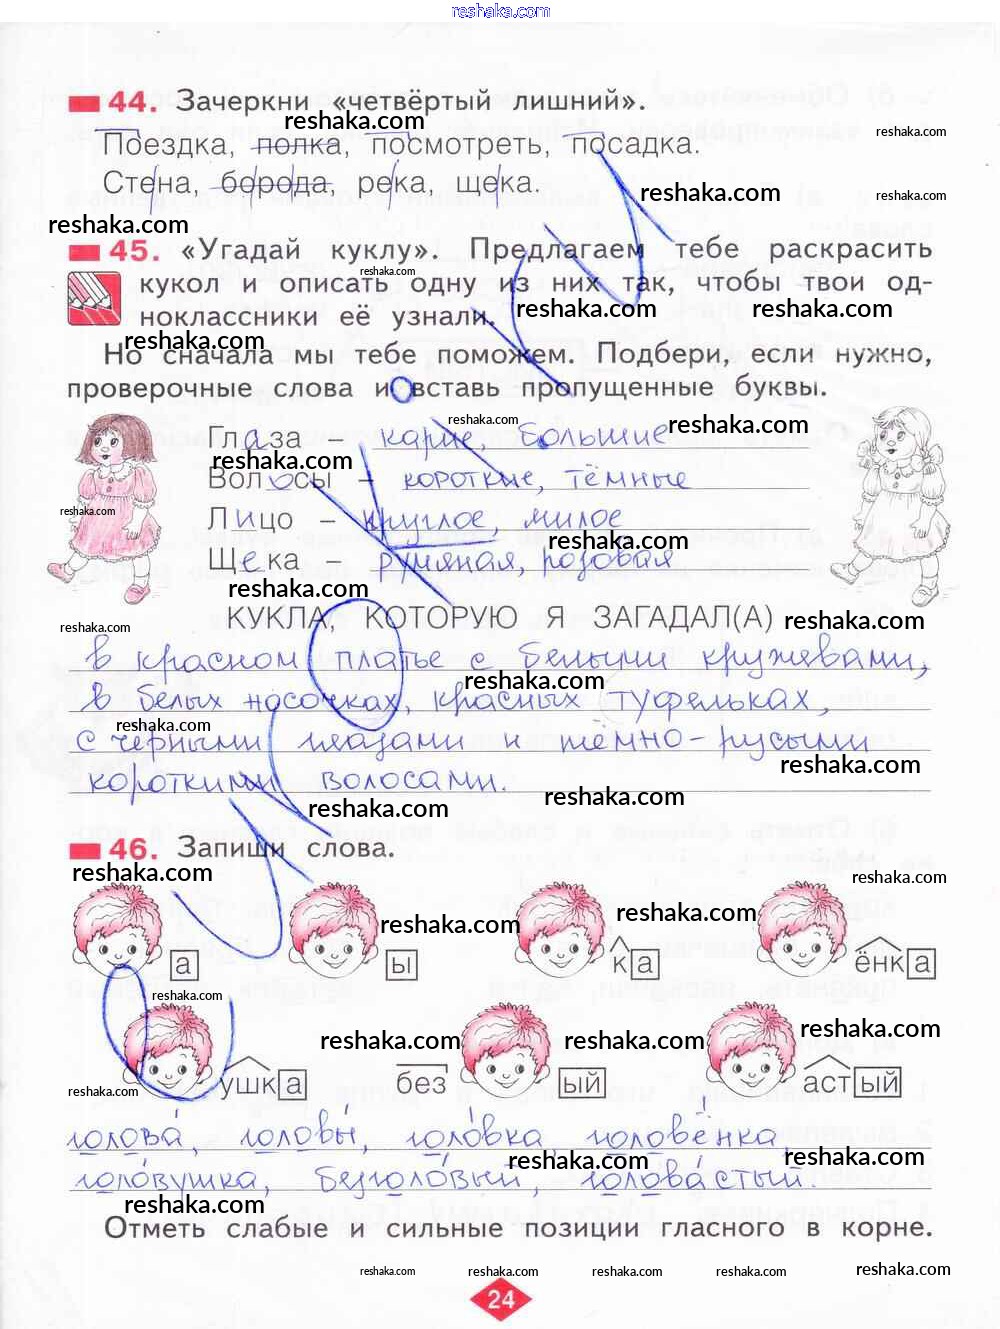 reshaka.com
44. Зачеркни «четвёртый лишний».
Поездка, полка, посмотреть, посадка.
Стена, борода, река, щека.
45. «Угадай куклу». Предлагаем тебе раскрасить
кукол и описать одну из них так, чтобы твои од-
ноклассники её узнали.
Но сначала мы тебе поможем. Подбери, если нужно,
проверочные слова и вставь пропущенные буквы.
Глаза – карие, большие
Волосы – короткие, тёмные
Лицо – круглое, милое
Щека – румяная, розовая
КУКЛА, КОТОРУЮ Я ЗАГАДАЛ(А)
в красном платье с белыми кружевами,
в белых носочках, красных туфельках,
с чёрными глазами и тёмно-русыми
короткими волосами.
46. Запиши слова.
а ы ка ёнка
ушка без ый астый
голова́, головы́, голо́вка, голове́нка
голо́вушка, безголо́вый, голова́стый.
Отметь слабые и сильные позиции гласного в корне.
24